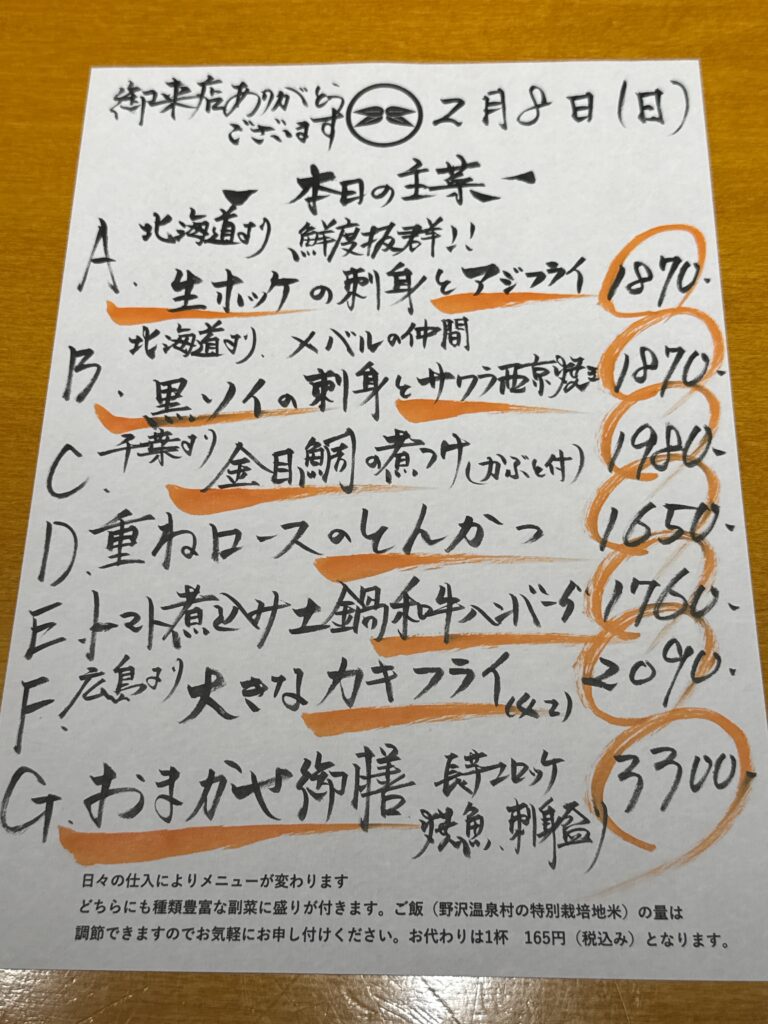 御来店ありがとう
ございます
2月8日(日)
本日の主菜
A. 北海道より 鮮度抜群!!
生ホッケの刺身とアジフライ 1870.
B. 北海道より、メバルの仲間
黒ソイの刺身とサワラ西京焼き 1870.
C. 千葉より 金目鯛の煮つけ(かぶと付) 1980.
D. 重ねロースのとんかつ 1650.
E. トマト煮込み土鍋和牛ハンバーグ 1760.
F. 広島より 大きなカキフライ 2090.
G. おまかせ御膳 長芋コロッケ 3300.
焼魚、刺身盛り
日々の仕入によりメニューが変わります
どちらにも種類豊富な副菜に盛りが付きます。ご飯(野沢温泉村の特別栽培地米)の量は
調節できますのでお気軽にお申し付けください。お代わりは1杯 165円(税込み)となります。